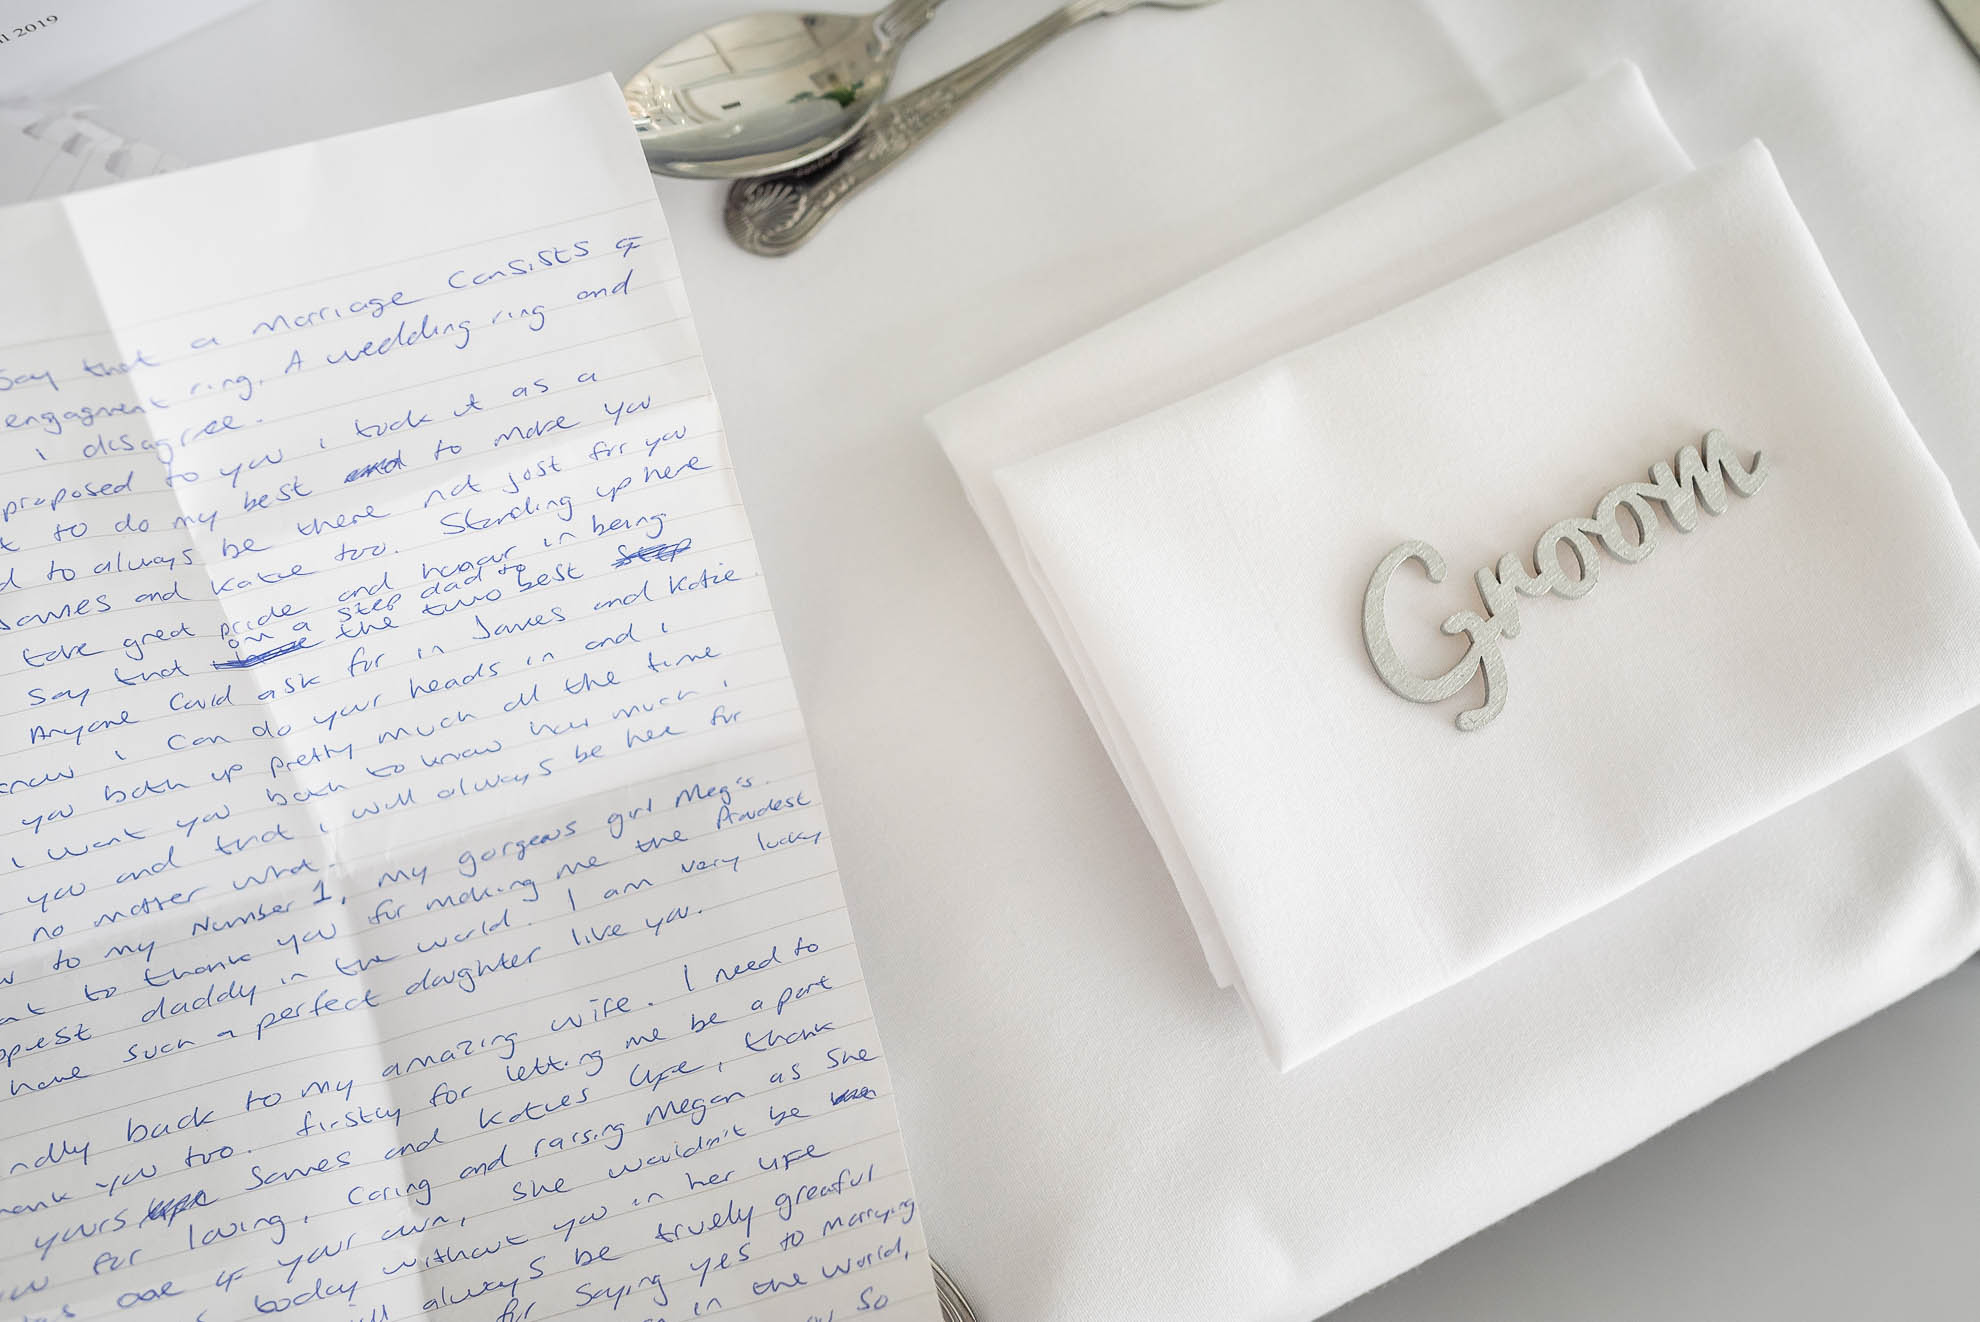 2019
say that a marriage consists of
engagment ring. A wedding ring and
i disagree.
proposed to you i took it as a
to do my best and to make you
to always be there not just for you
James and Katie too. Standing up here
take great pride and honour in being
on a step dad to
say that the two best step
Anyone could ask for in James and Katie.
i can do your heads in and i
you both up pretty much all the time
i want you both to know how much i
you and that i will always be here for
no matter what.
to my Number 1, my gorgeous girl Meg's.
to thank you for making me the Proudest
daddy in the world. I am very lucky
have such a perfect daughter like you.
back to my amazing wife. I need to
you too. firstly for letting me be a part
yours James and Katies life, thank
for loving, caring and raising Megan as she
one of your own, she wouldn't be
today without you in her life
always be truely greaful
for saying yes to marrying
in the world,
so
Groom